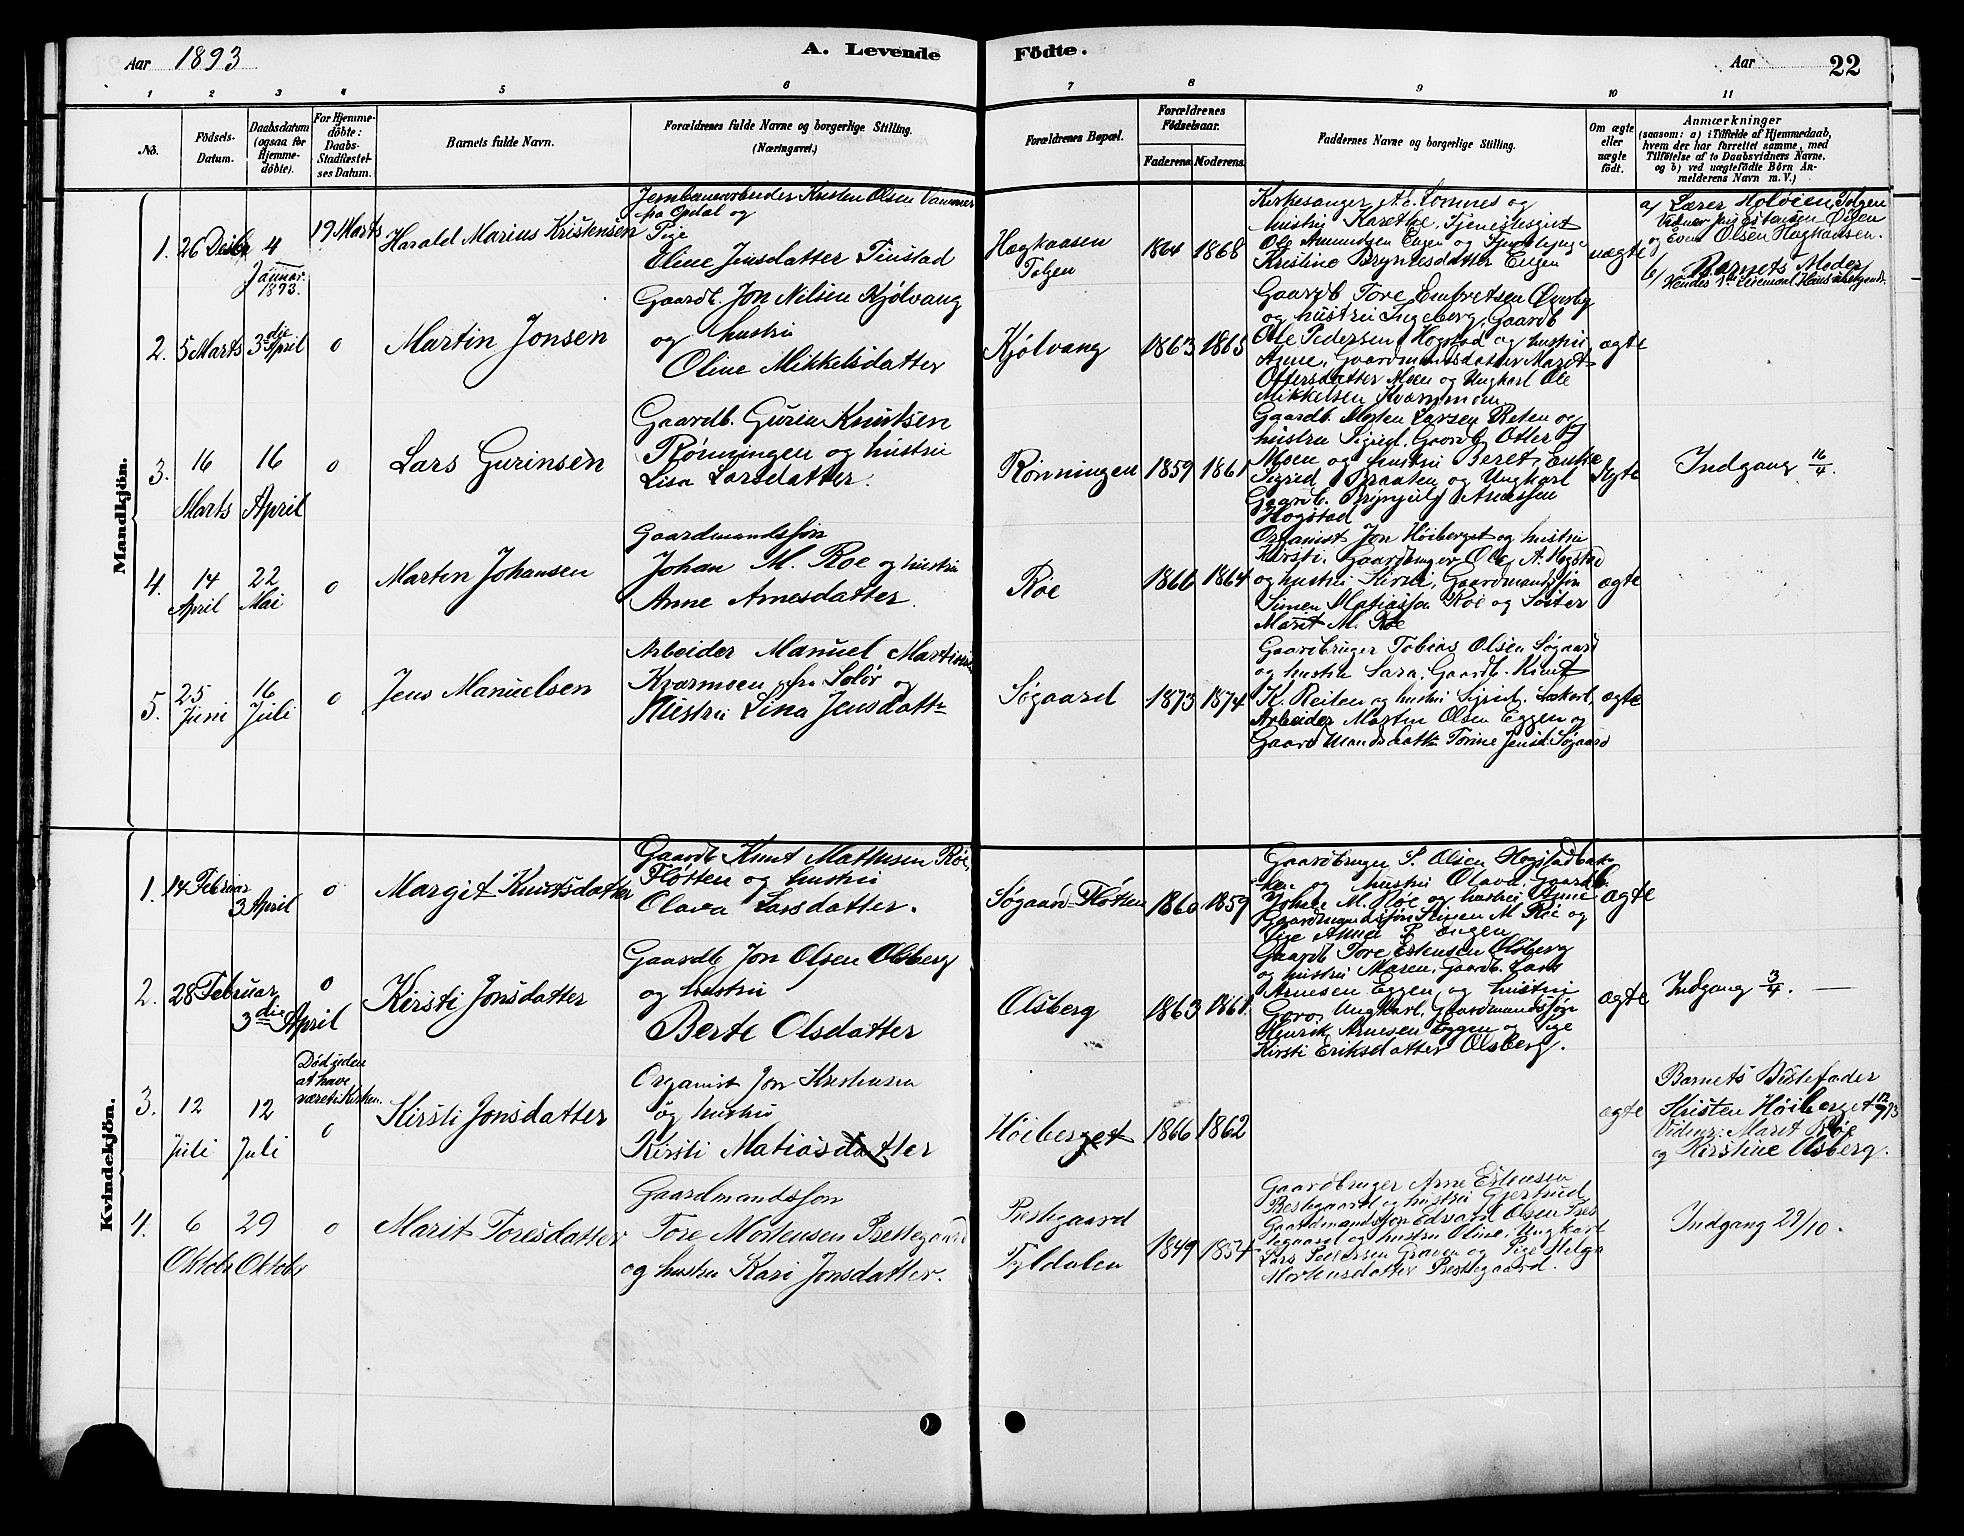 Aar 1893
A. Levende Födte.
Aar 22
1 2 3 4 5 6 7 8 9 10 11
No.
Födsels-
Datum.
Daabsdatum
(ogsaa for
Hjemme-
döbte).
For Hjemme-
döbte:
Daabs-
Stadfæstel-
ses Datum.
Barnets fulde Navn.
Forældrenes fulde Navne og borgerlige Stilling.
(Næringsvei.)
Forældrenes Bopæl.
Forældrenes
Födselsaar.
Faderens. Moderens.
Faddernes Navne og borgerlige Stilling.
Om ægte
eller
uægte
födt.
Anmærkninger
(saasom: a) i Tilfælde af Hjemmedaab,
hvem der har forrettet samme, med
Tilföielse af to Daabsvidners Navne,
og b) ved uægtefödte Börn An-
melderens Navn m. V.)
Mandkjön.
1. 26 Decbr 4
Januar
1893.
19 Marts
Harald Marius Kristensen
Jernbanearbeider Kristen Olsen
fra Opdal og
Pige
Eline Jensdatter
Hagkaasen
Tolgen
1864 1868
Kirkesanger Lomnes og
hustru
Ole Amundsen Engen og
Kristine Brynjelsdatter Engen
uægte
a) Lærer Holøien Tolgen
og Even Olsen Hagkaasen.
b) Barnets Moder
2. 5 Marts 3die April 0
Martin Jonsen
Gaardb. Jon Nilsen Kjølvang
og hustru
Oline Mikkelsdatter
Kjølvang
1863 1865
Gaardb Tore Embretsen
og hustru Ingeborg, Gaardb
Ole Pedersen Hogstad og hustru
Anne, Gaardmandsdatter Maret
Ottersdatter Moen og Ungkarl Ole
Mikkelsen Kværnmoen
ægte
3. 16 Marts 16 April 0
Lars Gurinsen
Gaardb. Gurin Knutsen
Rønningen og hustru
Lisa Larsdatter.
Rønningen
1859 1861
Gaardb. Morten Larsen Reten og
hustru Sigrid, Gaardb Otter
Moen og hustru Beret, Enke
Sigrid Braaten og Ungkarl
Gaardb. Brynjulf Arnessen
Hogstad
Ægte
Indgang 16/4.
4. 14 April 22 Mai 0
Martin Johansen
Gaardmandssøn
Johan M. Roe og hustru
Anne Arnesdatter.
Roe
1866 1864
Organist Jon Høiberget og hustru
Kirsti, Gaardbruger Ole A. Hogstad
og hustru Kirsti, Gaardmandssøn
Simen Matiassen Roe og Søster
Marit M. Roe
ægte
5. 25 Juni 16 Juli 0
Jens Manuelsen
Arbeider Manuel Martinsen
Kværmoen fra Solør og
Hustru Lina Jensdattr
Søgaard
1873 1874
Gaardbruger Tobias Olsen Søgaard
og hustru Sara, Gaardb. Knut
K. Reiten og hustru Sigrid,
Arbeider Morten Olsen Eggen og
Gaardmandsdattr Torine Jensd. Søgaard
ægte
Kvindekjön.
1. 14 Februar 3 April 0
Margit Knutsdatter
Gaardb Knut Mathisen Røe,
Fløtten og hustru
Olava Larsdatter.
Søgaard-Fløtten
1860 1859
Gaardbruger P. Olsen Hogstadbak-
ken og hustru Olava, Gaardb.
Johan M. Røe og hustru Anne
Gaardmandssøn Simen M. Røe og
Pige Anne P. Engen
ægte
2. 28 Februar 3die April 0
Kirsti Jonsdatter
Gaardb Jon Olsen Olsberg
og hustru
Berte Olsdatter
Olsberg
1863 1861.
Gaardb Tore Estensen Olsberg
og hustru Maren, Gaardb. Lars
Arnesen Eggen og hustru
Goro, Ungkarl, Gaardmandssøn
Henrik Arnesen Eggen og Pige
Kirsti Eriksdatter Olsberg.
ægte
Indgang 3/4. —
3. 12 Juli 12 Juli
Død uden
at have
været i Kirken.
0
Kirsti Jonsdatter
Organist Jon Kristensen
og hustru
Kirsti Matiasdatter
Høiberget
1866 1862
ægte
Barnets Bestefader
Kristen Høiberget 12/7 93
Vidner: Maret Røe
og Kirstine Olsberg.
4. 6 Oktobr 29 Oktobr 0
Marit Toresdatter
Gaardmandssøn
Tore Mortensen Prestegaard
og hustru Kari Jonsdatter.
Prestegaard
Tyldalen
1849 1854
Gaardbruger Arne Estensen
Prestegaard og hustru Gjertrud
Gaardmandssøn Edvard Olsen Pres
tegaard og hustru Oline, Ungkarl
Lars Pedersen Graven og Pige Helga
Mortensdatter Prestegaard.
Indgang 29/10.